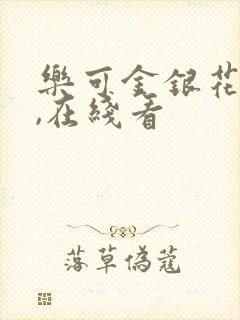 樂可金銀花
,在綫看
落草偽蔻